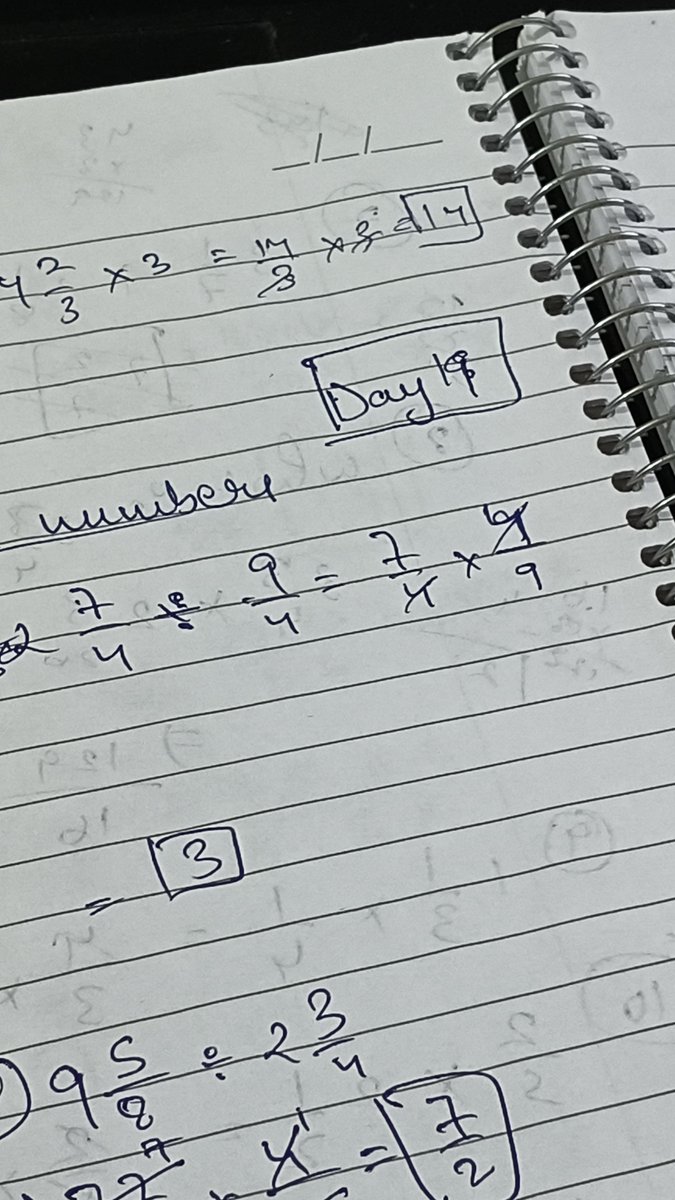 4 2/3 × 3 = 14/3 × 3 = 14
Day 19
numbers
7/4 ÷ 9/4 = 7/4 × 4/9
= 3
9 5/8 ÷ 2 3/4
= 7/2